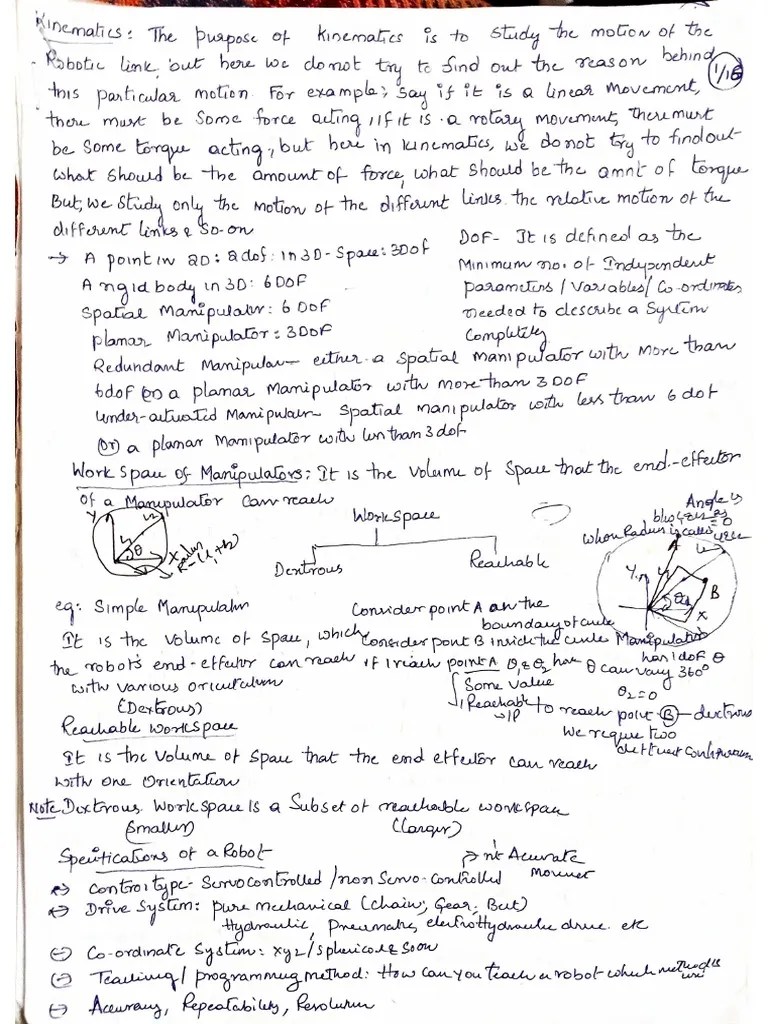 Kinematics: The purpose of kinematics is to study the motion of the
Robotic link, but here we do not try to find out the reason behind
this particular motion. For example; say if it is a linear movement,
there must be some force acting, if it is a rotary movement, there must
be some torque acting, but here in kinematics, we do not try to find out
what should be the amount of force, what should be the amnt of torque
But, we study only the motion of the different links. the relative motion of the
different links & so-on
→ A point in 2D: 2dof: in 3D-Space: 3Dof
A rigid body in 3D: 6DOF
Spatial Manipulatr: 6 DOF
planar Manipulator = 3DOF
DOF- It is defined as the
Minimum no. of Independent
parameters / Variables / Co-ordinates
needed to describe a System
Completely
Redundant Manipular- either a spatial manipulator with more than
6dof (or) a planar Manipulator with more than 3 DOF
under-actuated Manipulatr- Spatial manipulator with less than 6 dof
(or) a planar Manipulator with less than 3 dof
Work Space of Manipulators: It is the Volume of Space that the end-effector
of a Manipulator can reach
Y
L2
L1
θ
X
Radius
R-(L1+L2)
Workspace
Dextrous
Reachable
Angle is
= 0
when Radius is called
A
Y
B
X
eg: Simple Manipulatr
It is the Volume of Space, which
the robot's end-effector can reach
with various orientation
(Dextrous)
Consider point A on the
boundary of circle
Consider point B inside the circle
if I reach point A θ1 & θ2 have
Some value
Reachable
Manipulator
has 1 dof θ
θ can vary 360°
θ2 = 0
to reach point (B) - dextrous
We require two
different configuration
Reachable workspace
It is the Volume of Space that the end effector can reach
with one Orientation
Note Dextrous Workspace is a Subset of reachable workspace
(Smaller)
(Larger)
Specifications of a Robot
→ nt Accurate
Movemet
Control type- Servo controlled / non Servo-controlled
Drive System: pure mechanical (chain, Gear, Belt)
Hydraulic, Pneumatic, electroHydraulic drive. etc
Co-ordinate System: xyz / Spherical & soon
Teaching / programming method: How can you teach a robot which method is
use
Accuracy, Repeatability, Resolution